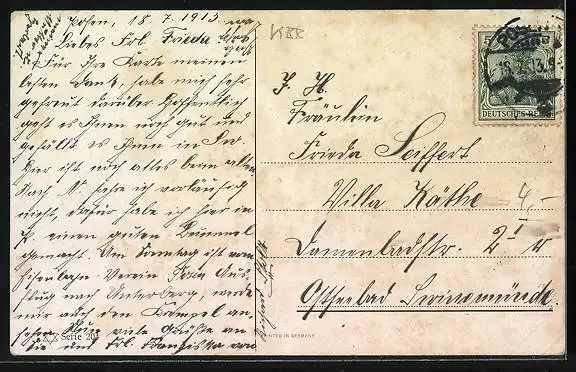 Posen, 18.7.1913.
Liebes Frl. Frieda
Für Ihre Karte meinen
besten Dank, habe mich sehr
gefreut darüber. Hoffentlich
geht es Ihnen noch gut und
gefällt es Ihnen in Sw.
Hier ist noch alles beim alten
Nach M. fahre ich vorläufig
nicht, dafür habe ich hier in
P. einen guten Bummel
gemacht. Am Sonntag ist vom
Eisenbahn-Verein Posen Aus-
flug nach Unterberg, werde
mir auch den Rümpel an-
sehen. Nun viele Grüße an
Sie und Frl. Franziska von
Serie 201
VKBB
I. H.
Fräulein
Frieda Seiffert
Villa Käthe
Damenbadstr. 2 I r
Ostseebad Swinemünde.
4,-
PRINTED IN GERMANY
DEUTSCHES REICH
18.7.13.